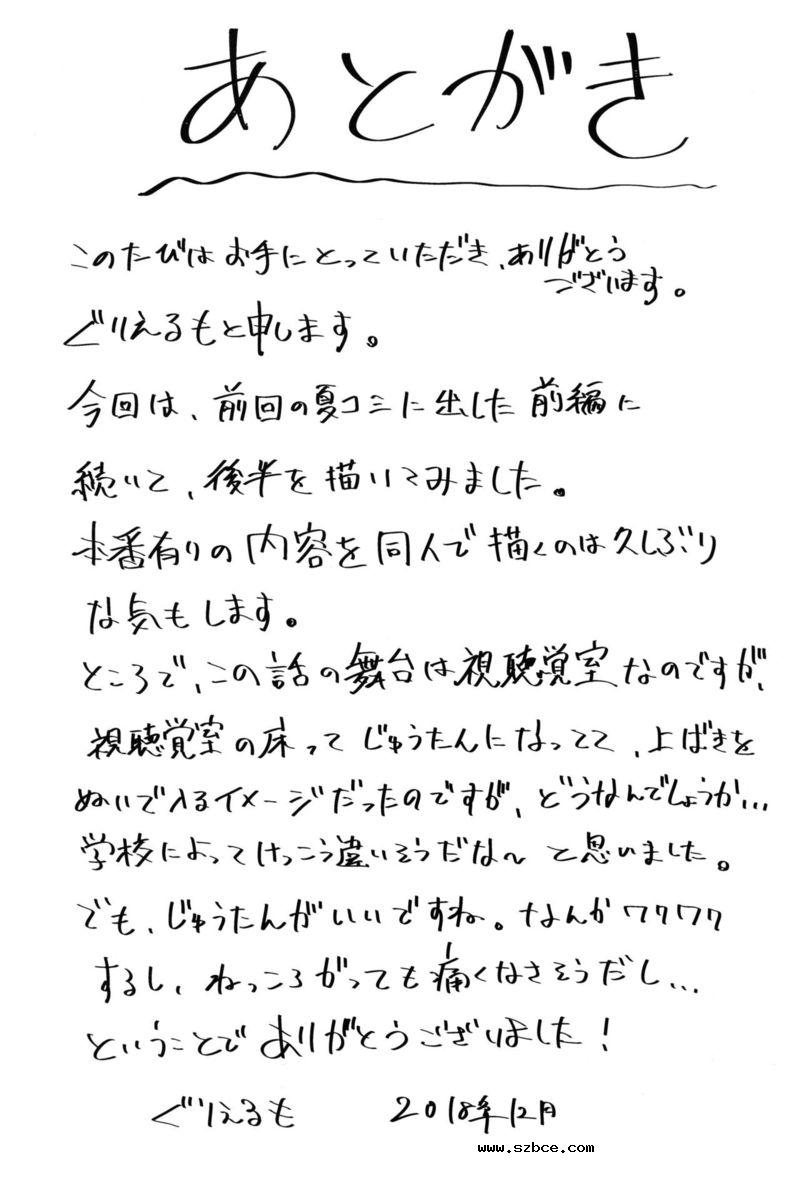 あとがき
このたびはお手にとっていただき、ありがとう
ございます。
ぐりえるもと申します。
今回は、前回の夏コミに出した前編に
続いて、後半を描いてみました。
本番有りの内容を同人で描くのは久しぶり
な気もします。
ところで、この話の舞台は視聴覚室なのですが、
視聴覚室の床ってじゅうたんになってて、上ばきを
ぬいで入るイメージだったのですが、どうなんでしょうか...
学校によってけっこう違いそうだな〜と思いました。
でも、じゅうたんがいいですね。なんかワクワク
するし、ねっころがっても痛くなさそうだし...
ということでありがとうございました!
ぐりえるも 2018年12月
www.szbce.com